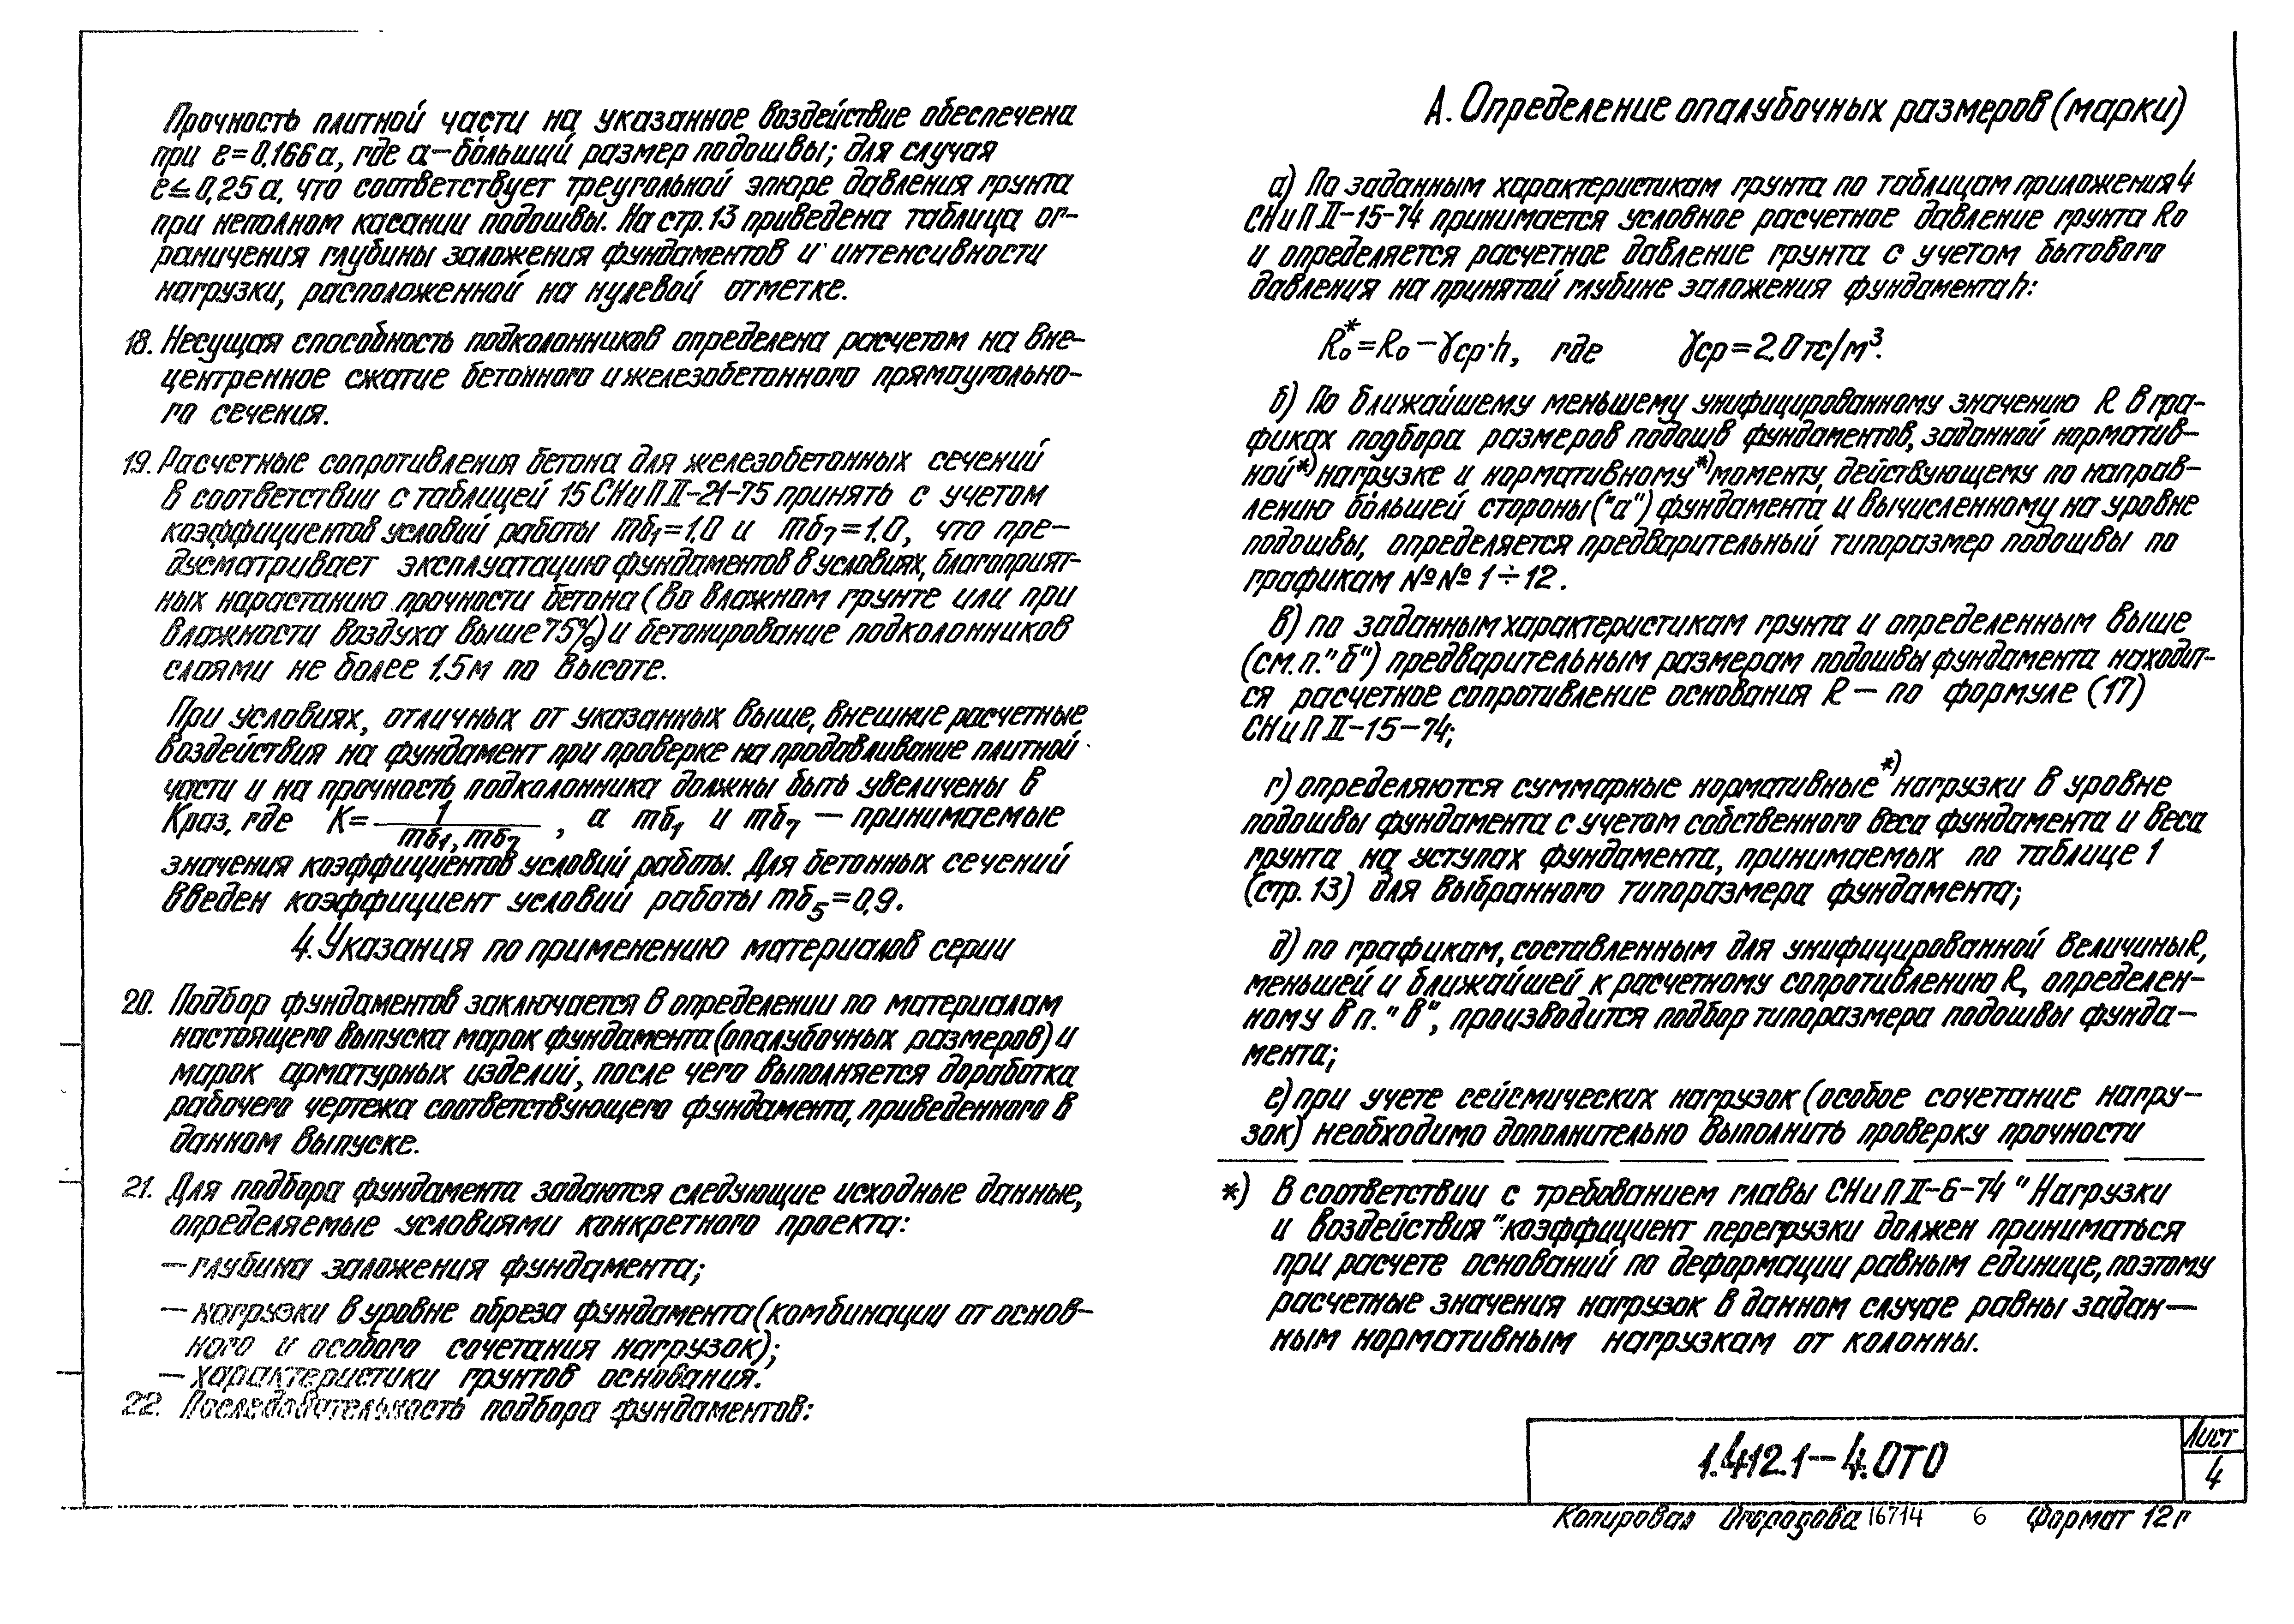 Прочность плитной части на указанное воздействие обеспечена
при e=0,166а, где а–больший размер подошвы; для случая
e≤0,25а, что соответствует треугольной эпюре давления грунта
при неполном касании подошвы. На стр.13 приведена таблица ог-
раничения глубины заложения фундаментов и интенсивности
нагрузки, расположенной на нулевой отметке.
18. Несущая способность подколонников определена расчетом на вне-
центренное сжатие бетонного и железобетонного прямоугольно-
го сечения.
19. Расчетные сопротивления бетона для железобетонных сечений
в соответствии с таблицей 15 СНиП II-21-75 принять с учетом
коэффициентов условий работы mб1=1.0 и mб7=1.0, что пре-
дусматривает эксплуатацию фундаментов в условиях, благоприят-
ных нарастанию прочности бетона (во влажном грунте или при
влажности воздуха выше 75%) и бетонирование подколонников
слоями не более 1,5м по высоте.
При условиях, отличных от указанных выше, внешние расчетные
воздействия на фундамент при проверке на продавливание плитной
части и на прочность подколонника должны быть увеличены в
К раз, где К= 1 / mб1, mб7 , а mб1 и mб7 — принимаемые
значения коэффициентов условий работы. Для бетонных сечений
введен коэффициент условий работы mб5=0,9.
4. Указания по применению материалов серии
20. Подбор фундаментов заключается в определении по материалам
настоящего выпуска марок фундамента (опалубочных размеров) и
марок арматурных изделий, после чего выполняется доработка
рабочего чертежа соответствующего фундамента, приведенного в
данном выпуске.
21. Для подбора фундамента задаются следующие исходные данные,
определяемые условиями конкретного проекта:
— глубина заложения фундамента;
— нагрузки в уровне обреза фундамента (комбинации от основ-
ного и особого сочетания нагрузок);
— характеристики грунтов основания.
22. Последовательность подбора фундаментов:
А. Определение опалубочных размеров (марки)
а) По заданным характеристикам грунта по таблицам приложения 4
СНиП II-15-74 принимается условное расчетное давление грунта Ro
и определяется расчетное давление грунта с учетом бытового
давления на принятой глубине заложения фундамента h:
Ro*=Ro–γср·h, где γср=2.0тс/м³.
б) По ближайшему меньшему унифицированному значению R в гра-
фиках подбора размеров подошв фундаментов, заданной норматив-
ной*) нагрузке и нормативному*) моменту, действующему по направ-
лению большей стороны ("а") фундамента и вычисленному на уровне
подошвы, определяется предварительный типоразмер подошвы по
графикам №№ 1÷12.
в) по заданным характеристикам грунта и определенным выше
(см.п."б") предварительным размерам подошвы фундамента находит-
ся расчетное сопротивление основания R — по формуле (17)
СНиП II-15-74;
г) определяются суммарные нормативные*) нагрузки в уровне
подошвы фундамента с учетом собственного веса фундамента и веса
грунта на уступах фундамента, принимаемых по таблице 1
(стр.13) для выбранного типоразмера фундамента;
д) по графикам, составленным для унифицированной величины R,
меньшей и ближайшей к расчетному сопротивлению R, определен-
ному в п."в", производится подбор типоразмера подошвы фунда-
мента;
е) при учете сейсмических нагрузок (особое сочетание нагру-
зок) необходимо дополнительно выполнить проверку прочности
*) В соответствии с требованием главы СНиП II-6-74 "Нагрузки
и воздействия" коэффициент перегрузки должен приниматься
при расчете оснований по деформации равным единице, поэтому
расчетные значения нагрузок в данном случае равны задан-
ным нормативным нагрузкам от колонны.
1.412.1–4.0ТО
Лист
4
Копировал Огородова 16714 6 Формат 12г